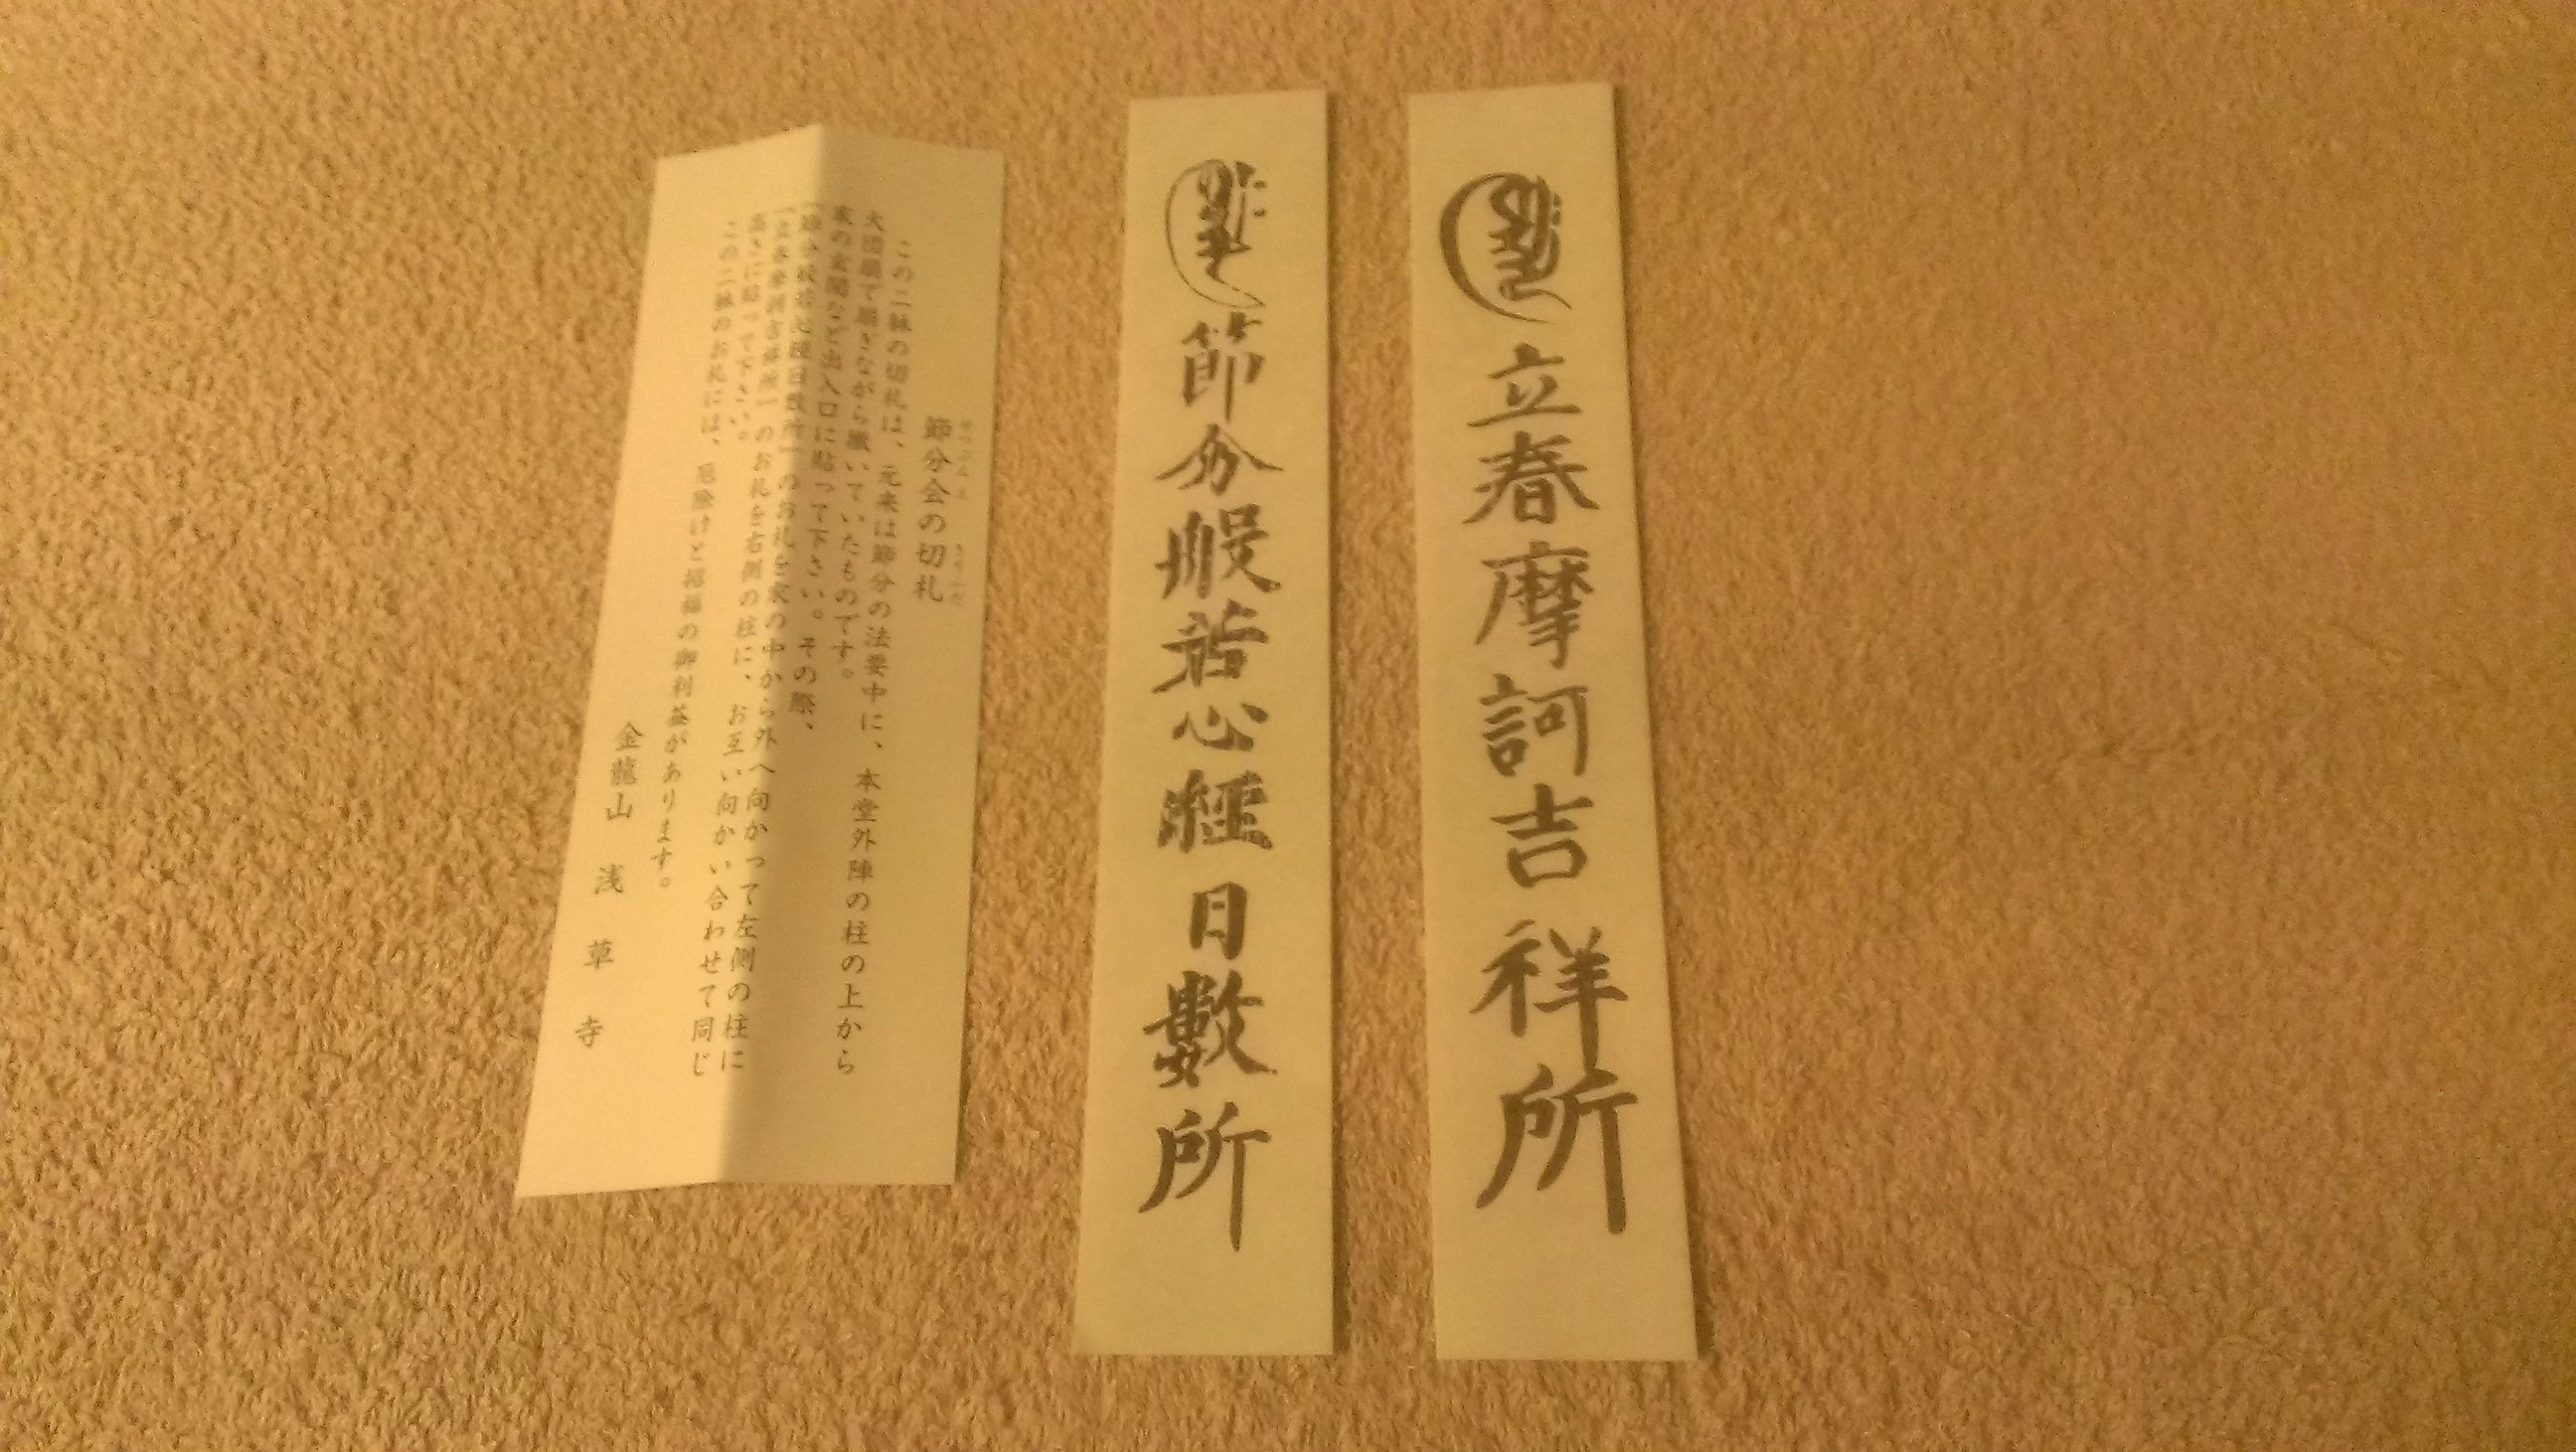 立春摩訶吉祥所
節分般若心経日数所
節分会の切札
せつぶんえ きりふだ
この二種の切札は、元来は節分の法要中に、本堂外陣の柱の上から
大団扇で扇ぎながら撒いていたものです。
家の玄関など出入口に貼って下さい。その際、
「節分般若心経日数所」のお札を家の中から外へ向かって左側の柱に
「立春摩訶吉祥所」のお札を右側の柱に、お互い向かい合わせて同じ
高さに貼って下さい。
この二種のお札には、厄除けと招福の御利益があります。
金龍山 浅草寺